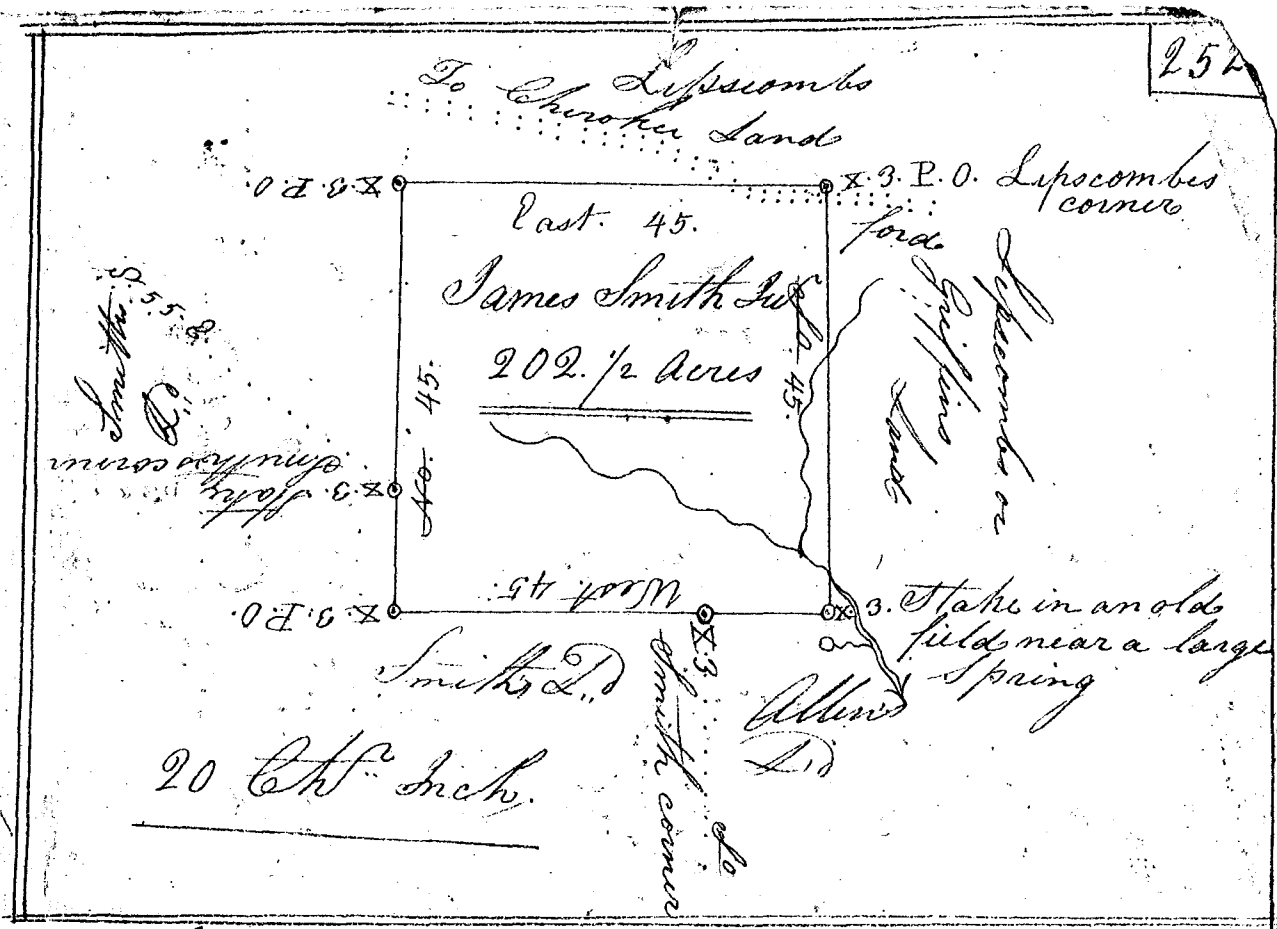 252
Lipscombs
To Cherokee Land
X. 3. P. O. Lipscombes
corner
X. 3. P. O
East. 45.
ford
James Smith Ju
202. 1/2 Acres
So 45.
No. 45.
Lipscombs or
Griffins
Land
S 55 E
Smiths
X. 3. Stake
Smiths corner
X. 3. P. O.
West. 45.
X 3. Stake in an old
field near a large
Spring
Smiths Ld
X. 3.
Smith corner
So
Allens
Ld
20 Chs Inch.